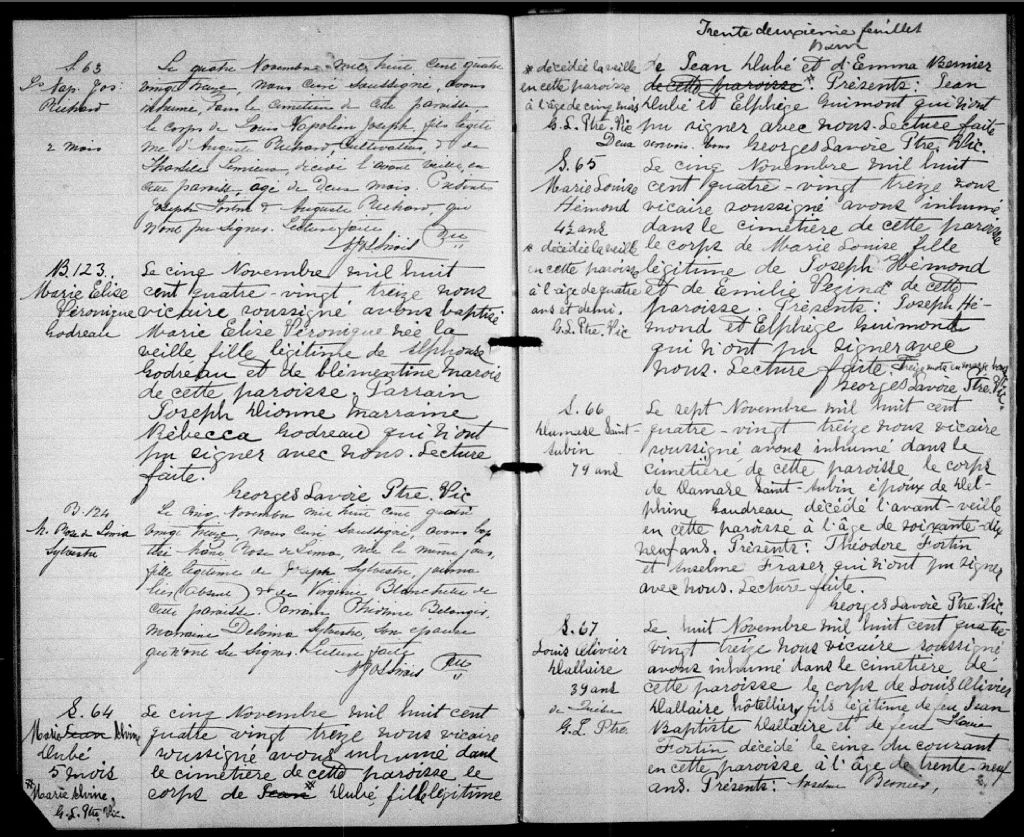 S. 63
Ls Nap. Jos.
Richard
2 mois
Le quatre Novembre mil huit cent quatre
vingt treize, nous curé soussigné, avons
inhumé, dans le cimetière de cette paroisse
le corps de Louis Napoléon Joseph, fils légiti
me d'Auguste Richard, Cultivateur, & de
Lemieux, décédé l'avant veille, en
cette paroisse, âgé de deux mois. Présents
Joseph Fortin & Auguste Richard, qui
n'ont pu signer. Lecture faite
Ptre
B. 123.
Marie Elise
Véronique
Godreau
Le cinq Novembre mil huit
cent quatre-vingt treize nous
vicaire soussigné avons baptisé
Marie Elise Véronique née la
veille fille légitime de Alphonse
Godreau et de Clémentine Marois
de cette paroisse. Parrain
Joseph Dionne Marraine
Rébecca Godreau qui n'ont
pu signer avec nous. Lecture
faite.
Georges Lavoie Ptre. Vic
B. 124
M. Rose de Lima
Sylvestre
Le cinq Novembre mil huit cent quatre
vingt treize, nous curé soussigné, avons bap
tisé Marie Rose de Lima, née le même jour,
fille légitime de Joseph Sylvestre, journa
lier (absent) & de Virginie Blanchette de
cette paroisse. Parrain Belanger,
marraine Delvina Sylvestre, son épouse
qui n'ont su signer. Lecture faite
Ptre
S. 64
Marie Jean Alvine
Dubé
5 mois
* Marie Alvine,
G. L. Ptre. Vic.
Le cinq Novembre mil huit cent
quatre vingt treize nous vicaire
soussigné avons inhumé dans
le cimetière de cette paroisse le
corps de Jean * Dubé, fille légitime
Trente deuxième feuillet
* décédée la veille
en cette paroisse
à l'âge de cinq mois
G. L. Ptre. Vic
de Jean Dubé et d'Emma Bernier
de cette paroisse. * Présents: Jean
Dubé et Elphège Guimont qui n'ont
pu signer avec nous. Lecture faite
Deux renvois bons Georges Lavoie Ptre. Vic.
S. 65
Marie Louise
Hémond
4½ ans
* décédée la veille
en cette paroisse
à l'âge de quatre
ans et demi.
G. L. Ptre. Vic
Le cinq Novembre mil huit
cent quatre-vingt treize nous
vicaire soussigné avons inhumé
dans le cimetière de cette paroisse
le corps de Marie Louise fille
légitime de Joseph Hémond
et de Emilie * de cette
paroisse. Présents: Joseph Hé-
mond et Elphège Guimond
qui n'ont pu signer avec
nous. Lecture faite. Treize mots en marge bons
Georges Lavoie Ptre. Vic.
S. 66
Damase Saint-
Aubin
79 ans
Le sept Novembre mil huit cent
quatre-vingt treize nous vicaire
soussigné avons inhumé dans le
cimetière de cette paroisse le corps
de Damase Saint-Aubin époux de Del-
phine Gaudreau décédé l'avant-veille
en cette paroisse à l'âge de soixante-dix
neuf ans. Présents: Théodore Fortin
et Anselme Fraser qui n'ont pu signer
avec nous. Lecture faite.
Georges Lavoie Ptre. Vic.
S. 67
Louis Olivier
Dallaire
39 ans
G. L. Ptre.
Le huit Novembre mil huit cent quatre-
vingt treize nous vicaire soussigné
avons inhumé dans le cimetière de
cette paroisse le corps de Louis Olivier
Dallaire hôtellier, fils légitime de feu Jean
Baptiste Dallaire et de feue Flavie
Fortin décédé le cinq du courant
en cette paroisse à l'âge de trente-neuf
ans. Présents: Anselme Bernier,